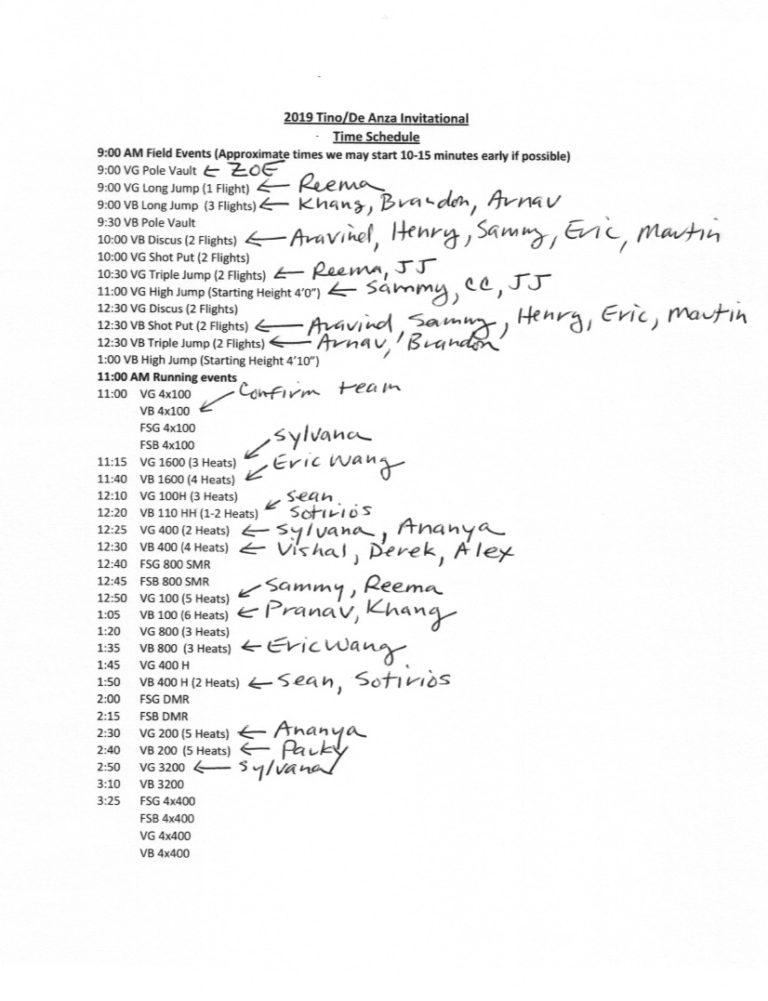 2019 Tino/De Anza Invitational
Time Schedule
9:00 AM Field Events (Approximate times we may start 10-15 minutes early if possible)
9:00 VG Pole Vault ← ZOE
9:00 VG Long Jump (1 Flight) ← Reema
9:00 VB Long Jump (3 Flights) ← Khang, Brandon, Arnav
9:30 VB Pole Vault
10:00 VB Discus (2 Flights) ← Aravind, Henry, Sammy, Eric, Martin
10:00 VG Shot Put (2 Flights)
10:30 VG Triple Jump (2 Flights) ← Reema, JJ
11:00 VG High Jump (Starting Height 4'0") ← Sammy, CC, JJ
12:30 VG Discus (2 Flights)
12:30 VB Shot Put (2 Flights) ← Aravind, Sammy, Henry, Eric, Martin
12:30 VB Triple Jump (2 Flights) ← Arnav, Brandon
1:00 VB High Jump (Starting Height 4'10")
11:00 AM Running events
11:00 VG 4x100
VB 4x100 ← Confirm team
FSG 4x100
FSB 4x100
11:15 VG 1600 (3 Heats) ← Sylvana
11:40 VB 1600 (4 Heats) ← Eric Wang
12:10 VG 100H (3 Heats)
12:20 VB 110 HH (1-2 Heats) ← Sean Sotirios
12:25 VG 400 (2 Heats) ← Sylvana, Ananya
12:30 VB 400 (4 Heats) ← Vishal, Derek, Alex
12:40 FSG 800 SMR
12:45 FSB 800 SMR
12:50 VG 100 (5 Heats) ← Sammy, Reema
1:05 VB 100 (6 Heats) ← Pranav, Khang
1:20 VG 800 (3 Heats)
1:35 VB 800 (3 Heats) ← Eric Wang
1:45 VG 400 H
1:50 VB 400 H (2 Heats) ← Sean, Sotirios
2:00 FSG DMR
2:15 FSB DMR
2:30 VG 200 (5 Heats) ← Ananya
2:40 VB 200 (5 Heats) ←
2:50 VG 3200 ← Sylvana
3:10 VB 3200
3:25 FSG 4x400
FSB 4x400
VG 4x400
VB 4x400